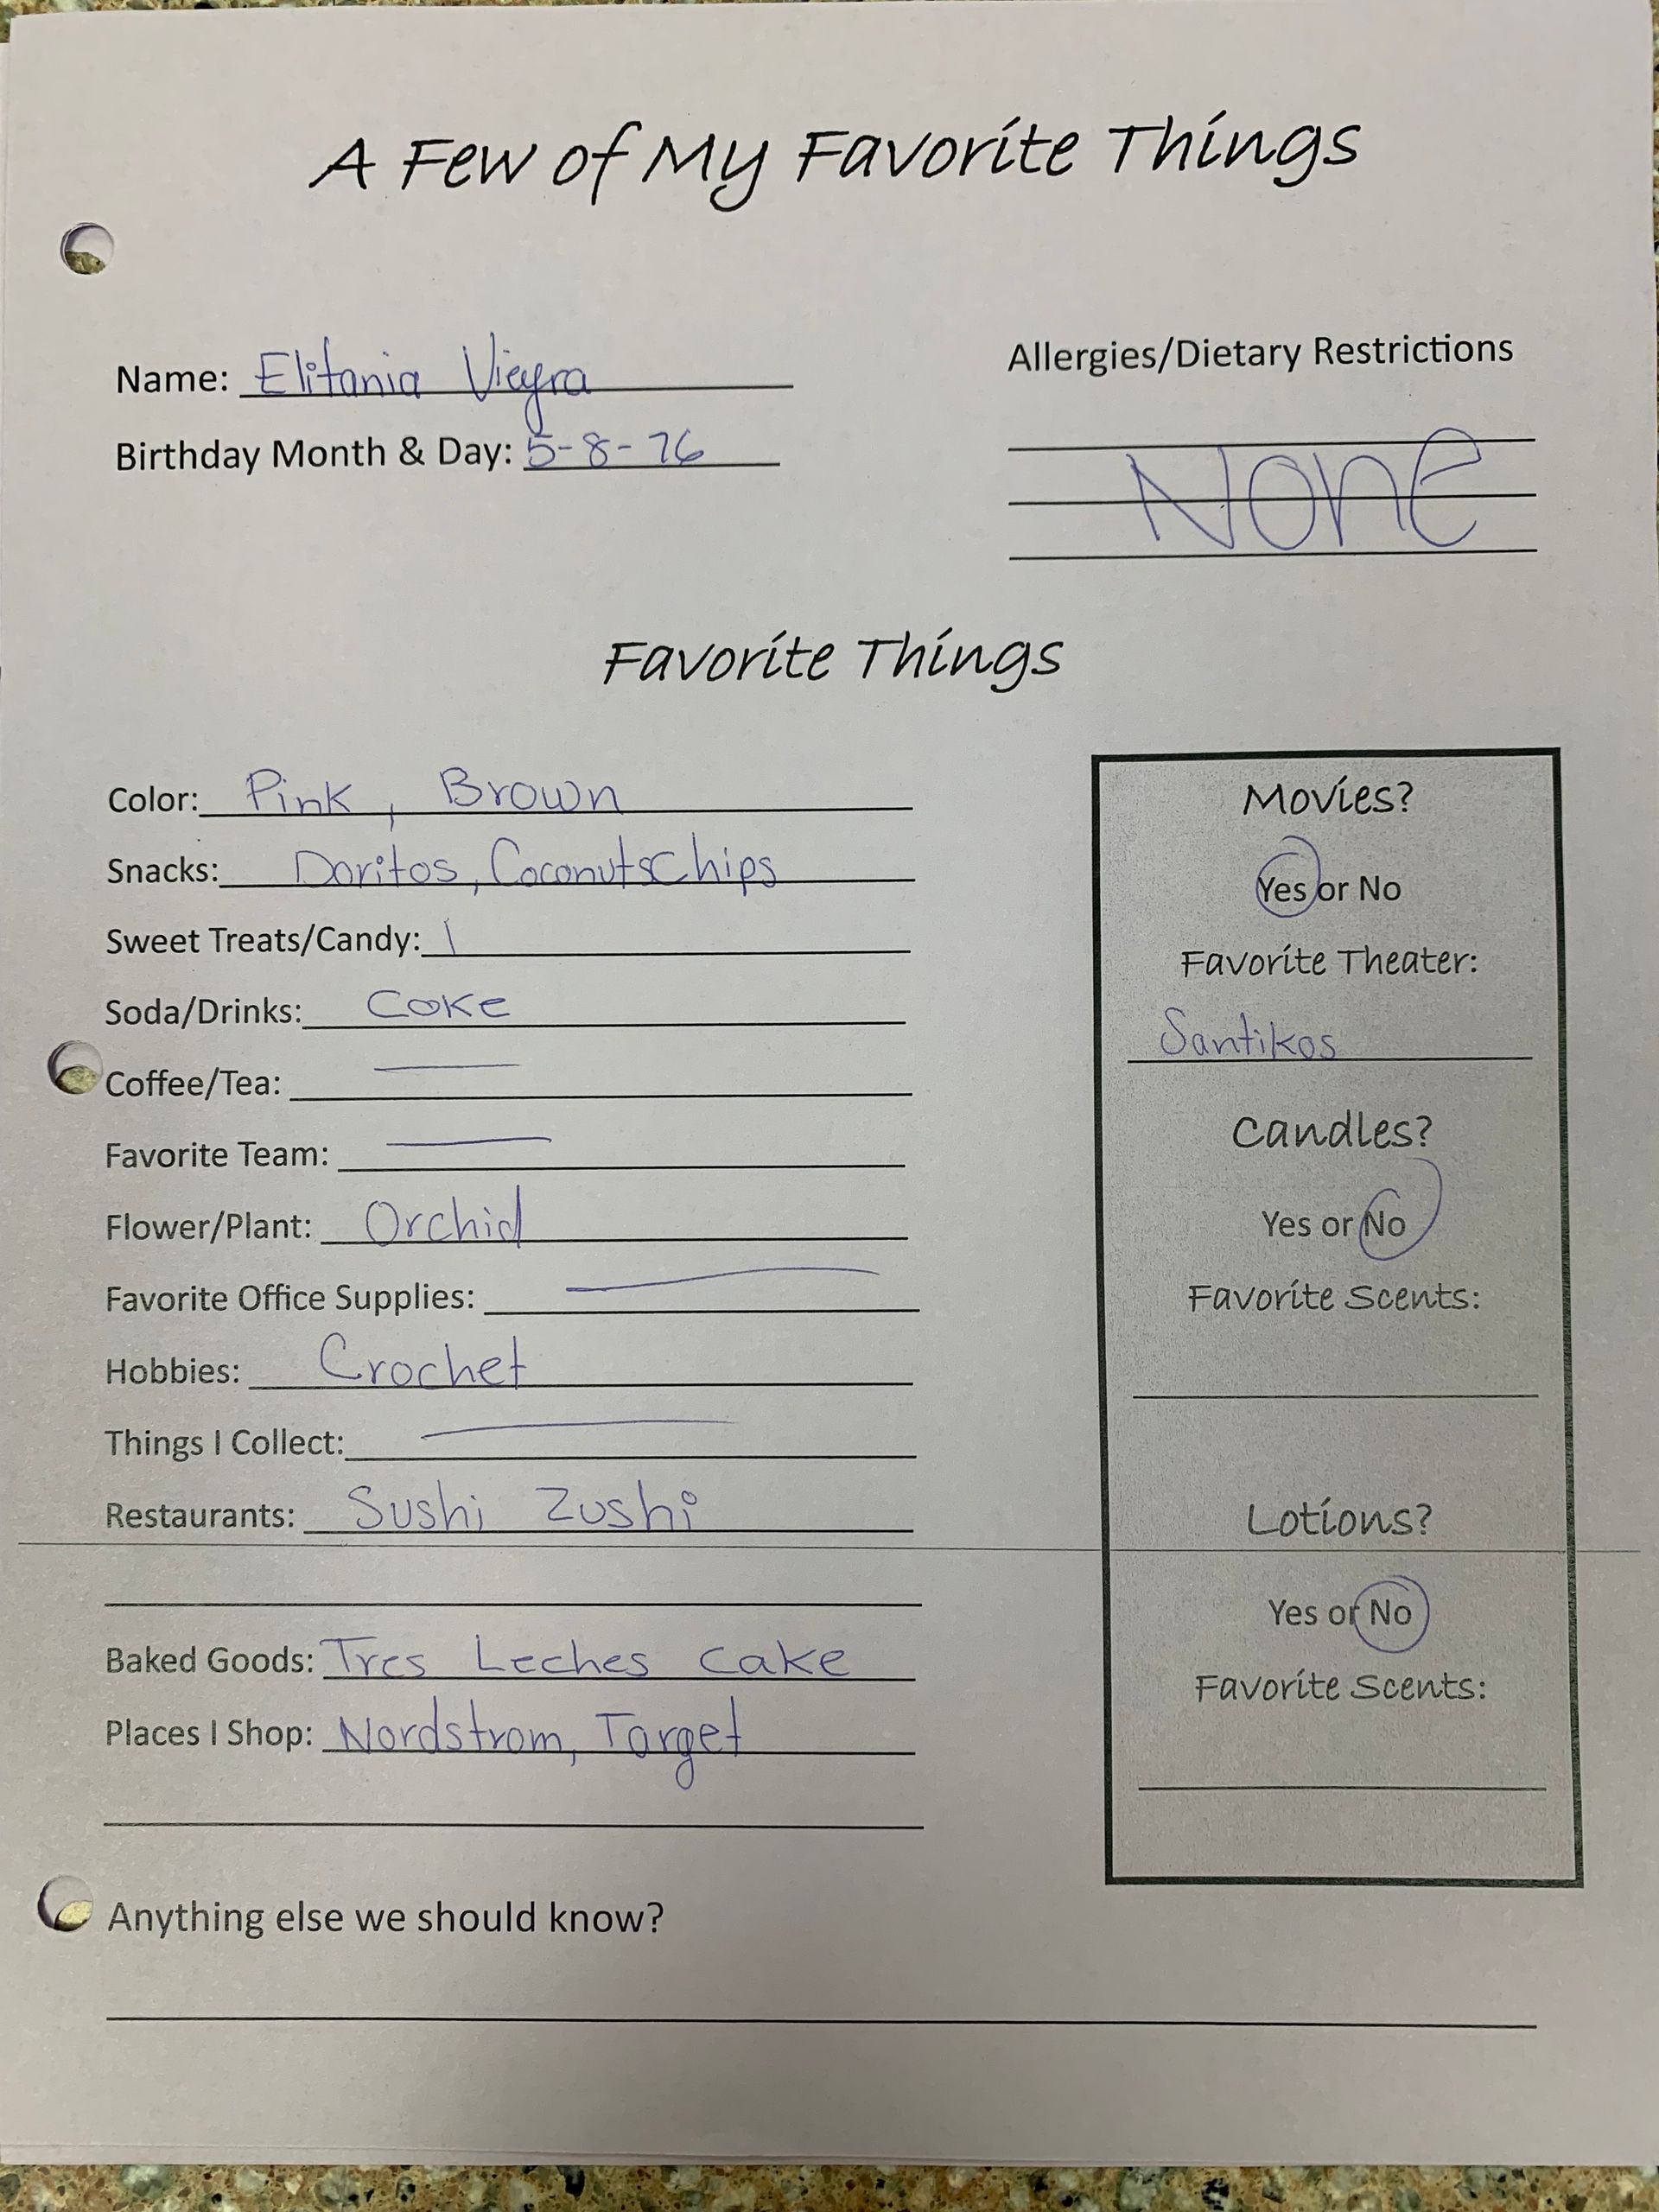 A Few of My Favorite Things
Name: Elitania Vieyra
Birthday Month & Day: 5-8-76
Allergies/Dietary Restrictions
None
Favorite Things
Color: Pink, Brown
Snacks: Doritos, Coconuts Chips
Sweet Treats/Candy:
Soda/Drinks: Coke
Coffee/Tea: —
Favorite Team: —
Flower/Plant: Orchid
Favorite Office Supplies: —
Hobbies: Crochet
Things I Collect: —
Restaurants: Sushi Zushi
Baked Goods: Tres Leches Cake
Places I Shop: Nordstrom, Target
Movies?
Yes or No
Favorite Theater:
Santikos
Candles?
Yes or No
Favorite Scents:
Lotions?
Yes or No
Favorite Scents:
Anything else we should know?